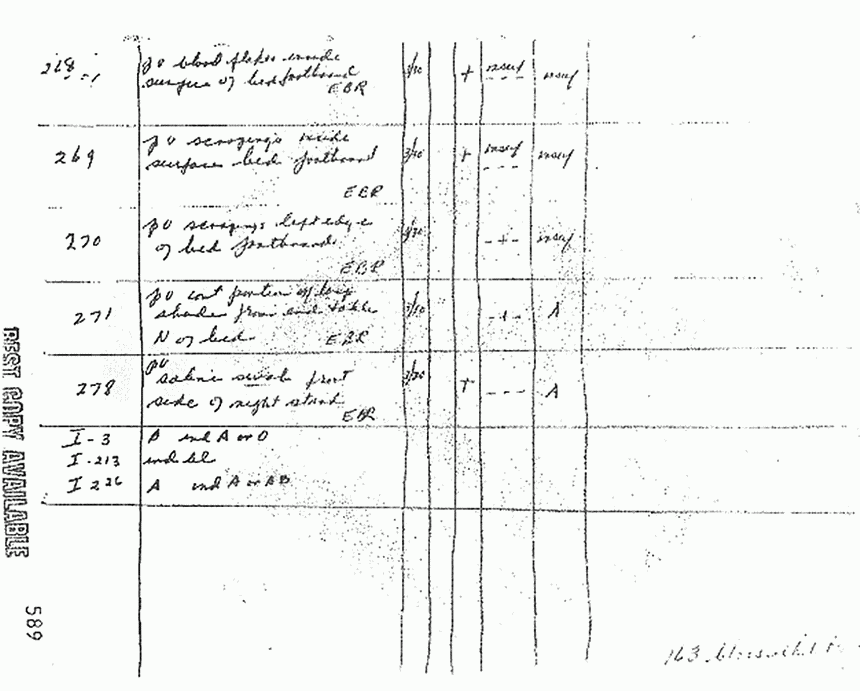 268
po blood flakes inside
surface of bed footboard
EBR
3/30 + insuf - - - insuf
269
po scrapings inside
surface bed footboard
EBR
3/30 + insuf - - - insuf
270
po scrapings left edge
of bed footboard
EBR
3/30 - + - insuf
271
po portion of
shade from end table
N of bed EBR
3/30 - + - A
278
po
saline swab front
side of night stand
EBR
3/30 + - - - A
I-3 ind A or O
I-213 ind bl
I 226 A ind A or AB
BEST COPY AVAILABLE
589
163